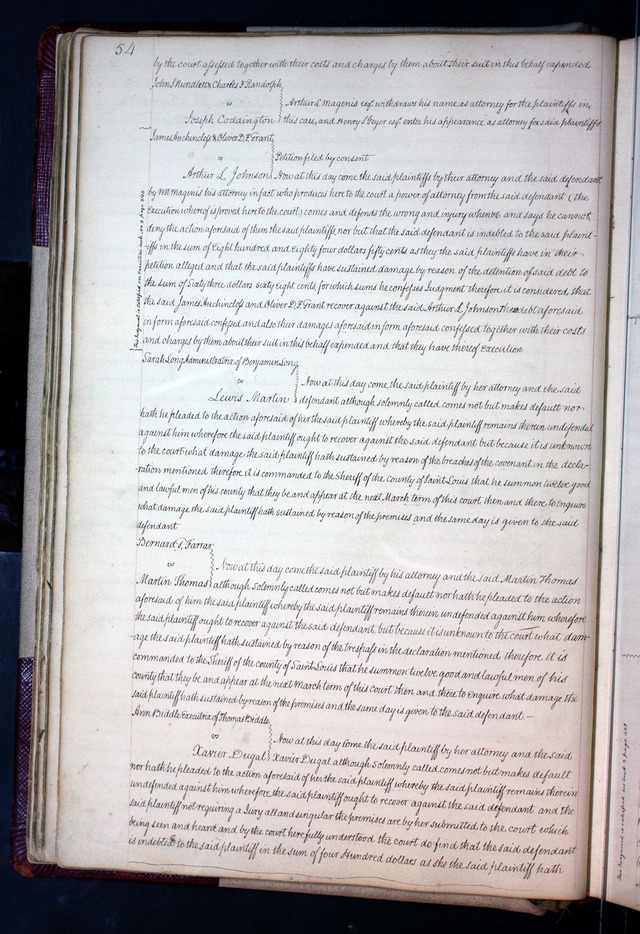 54
by the court assessed together with their costs and charges by them about their suit in this behalf expended
John S Rundlett & Charles F Randolph
vs
Arthur L Magenis esqr. withdraws his name as attorney for the plaintiffs in
Joseph Coddington
this case, and Henry S Geyer esqr. enter his appearance as attorney for said plaintiffs
James Auchincloss & Oliver D. F Grant
vs
Petition filed by consent
Arthur L Johnson
Now at this day come the said plaintiffs by their attorney and the said defendant
by Mr Magenis his attorney in fact who produces here to the court a power of attorney from the said defendant (the
Execution whereof is proved here to the court) comes and defends the wrong and injury when &c and says he cannot
deny the action aforesaid of them the said plaintiffs nor but that the said defendant is indebted to the said plaint-
iffs in the sum of Eight hundred and Eighty four dollars fifty cents as they the said plaintiffs have in their
petition alleged and that the said plaintiffs have sustained damage by reason of the detention of said debt to
the sum of Sixty three dollars sixty eight cents, for which sums he confesses Judgment therefore it is considered that
the said James Auchincloss and Oliver D. F Grant recover against the said Arthur L Johnson the debt aforesaid
in form aforesaid confessed and also their damages aforesaid in form aforesaid confessed together with their costs
and charges by them about their suit in this behalf expended and that they have thereof Execution
Sarah Long Administratrix of Benjamin Long
vs
Now at this day come the said plaintiff by her attorney and the said
Lewis Martin
defendant although solemnly called comes not but makes default nor
hath he pleaded to the action aforesaid of her the said plaintiff whereby the said plaintiff remains therein undefended
against him wherefore the said plaintiff ought to recover against the said defendant but because it is unknown
to the court what damage the said plaintiff hath sustained by reason of the breaches of the covenant in the decla-
ration mentioned therefore it is commanded to the Sheriff of the county of Saint Louis that he summon twelve good
and lawful men of his county that they be and appear at the next March term of this court then and there to Enquire
what damage the said plaintiff hath sustained by reason of the premises and the same day is given to the said
defendant
Bernard G. Farrar
vs
Now at this day come the said plaintiff by his attorney and the said Martin Thomas
Martin Thomas
although solemnly called comes not but makes default nor hath he pleaded to the action
aforesaid of him the said plaintiff whereby the said plaintiff remains therein undefended against him wherefore
the said plaintiff ought to recover against the said defendant, but because it is unknown to the court what dam-
age the said plaintiff hath sustained by reason of the trespass in the declaration mentioned therefore it is
commanded to the Sheriff of the county of Saint Louis that he summon twelve good and lawful men of his
county that they be and appear at the next March term of this court then and there to Enquire what damage the
said plaintiff hath sustained by reason of the premises and the same day is given to the said defendant.—
Ann Biddle Executrix of Thomas Biddle
vs
Now at this day come the said plaintiff by her attorney and the said
Xavier Dugal
Xavier Dugal although solemnly called comes not but makes default
nor hath he pleaded to the action aforesaid of her the said plaintiff whereby the said plaintiff remains therein
undefended against him wherefore the said plaintiff ought to recover against the said defendant and the
said plaintiff not requiring a Jury all and singular the premises are by her submitted to the court which
being seen and heard and by the court here fully understood the court do find that the said defendant
is indebted to the said plaintiff in the sum of four Hundred dollars as she the said plaintiff hath